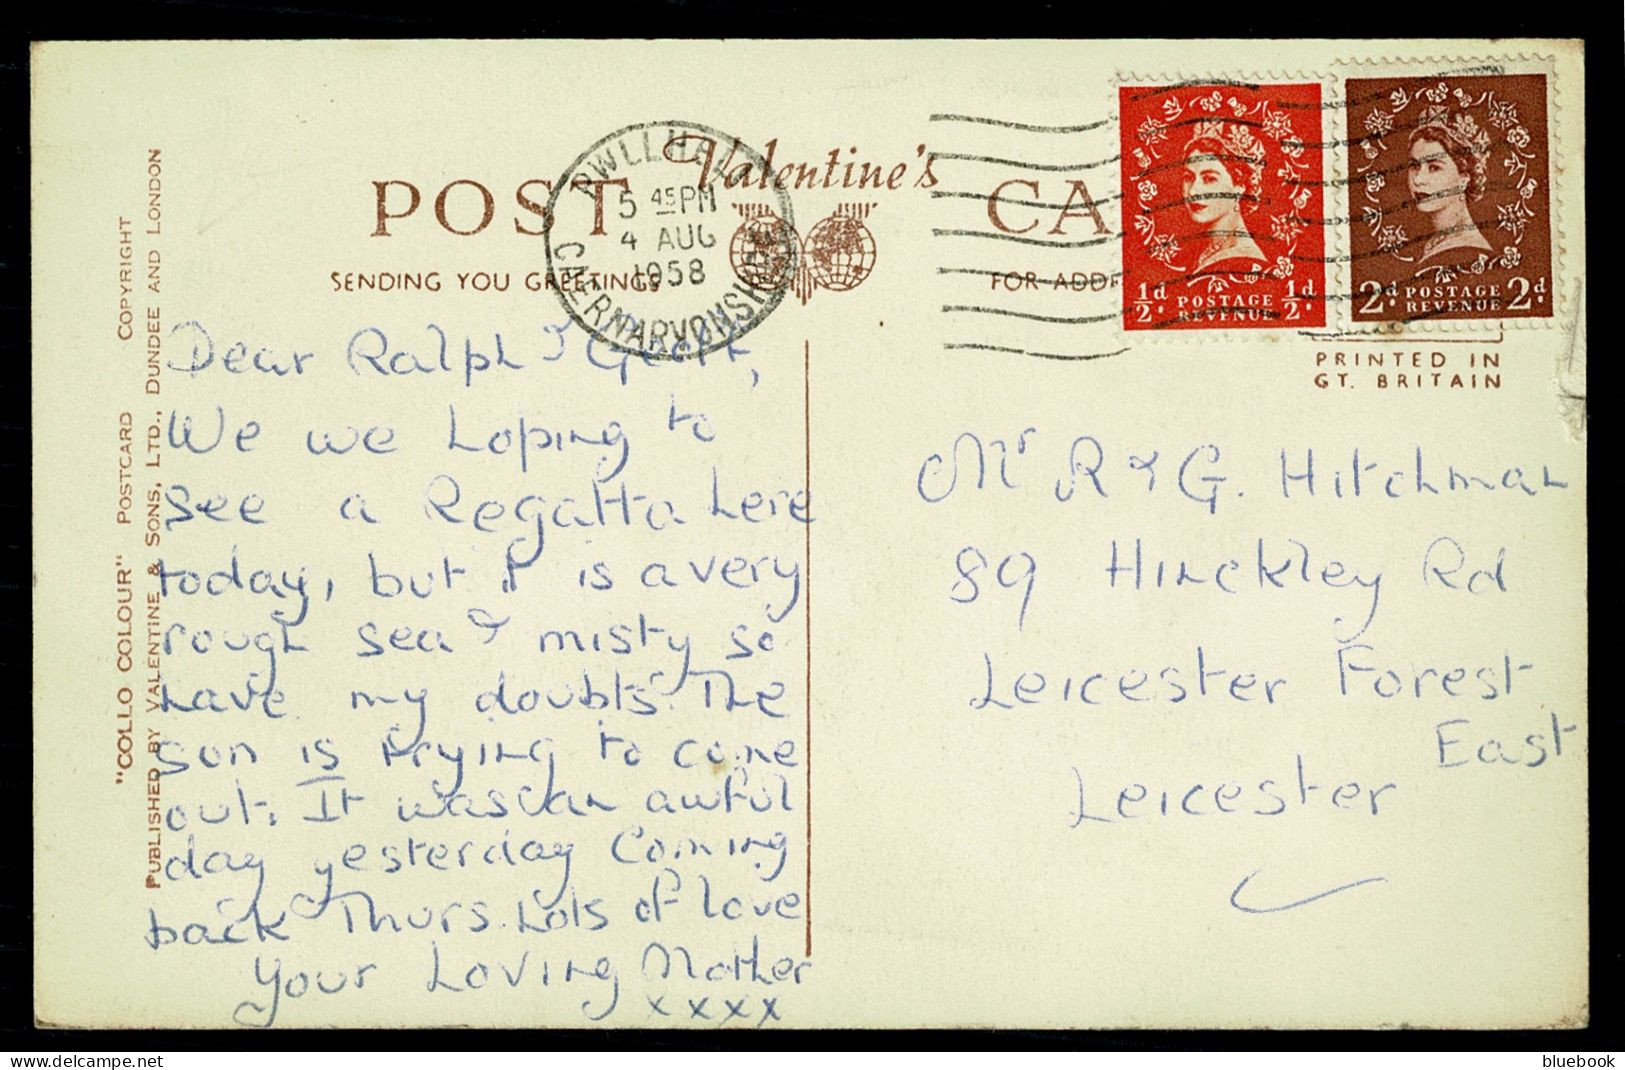 POST CARD
Valentine's
SENDING YOU GREETINGS
FOR ADDR
PWLLHELI
5 45 PM
4 AUG
1958
CAERNARVONSHIRE
½d POSTAGE REVENUE ½d
2d. POSTAGE REVENUE 2d.
PRINTED IN
GT. BRITAIN
"COLLO COLOUR" POSTCARD COPYRIGHT
PUBLISHED BY VALENTINE & SONS, LTD., DUNDEE AND LONDON
Dear Ralph &
We we hoping to
see a Regatta here
today, but it is a very
rough sea & misty so
have my doubts. The
sun is trying to come
out. It was an awful
day yesterday Coming
back Thurs. Lots of love
Your Loving Mother
xxxx
Mr R & G. Hitchman
89 Hinckley Rd
Leicester Forest
East
Leicester
bluebook